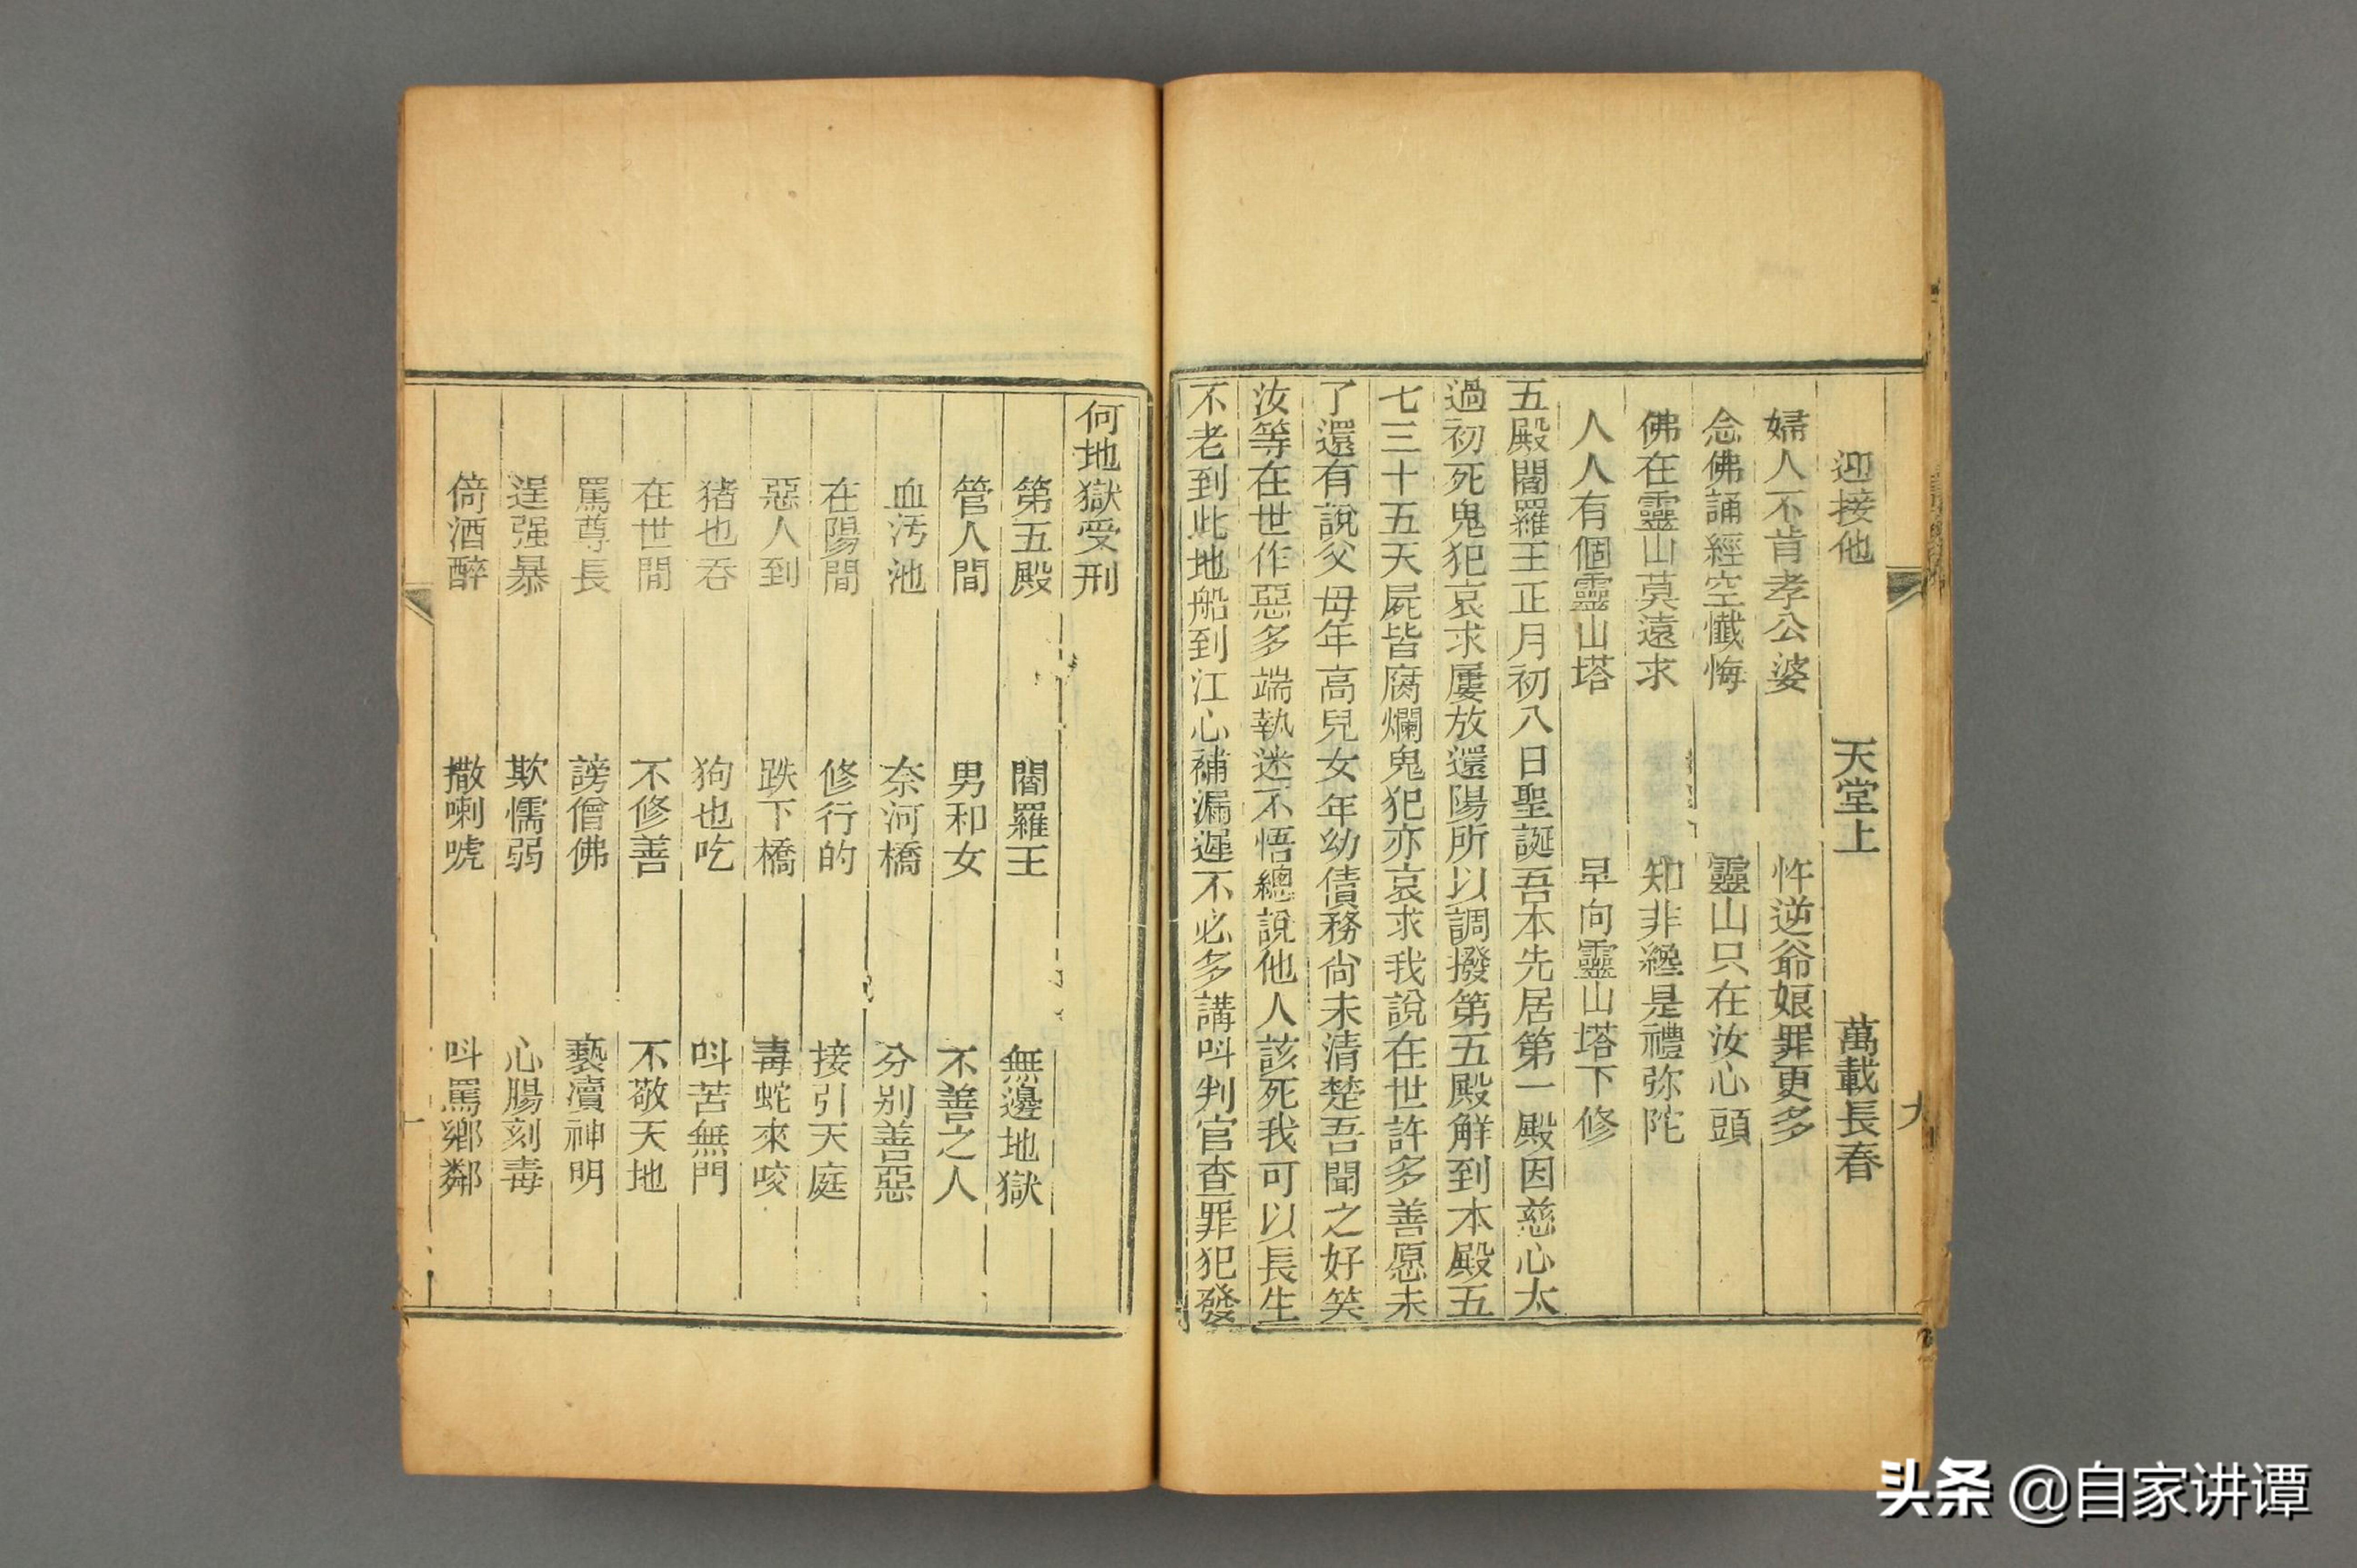 迎接他　天堂上　萬載長春
婦人不肯孝公婆　忤逆爺娘罪更多
念佛誦經空懺悔　靈山只在汝心頭
佛在靈山莫遠求　知非纔是禮弥陀
人人有個靈山塔　早向靈山塔下修
五殿閻羅王正月初八日聖誕吾本先居第一殿因慈心太
過初死鬼犯哀求屢放還陽所以調撥第五殿解到本殿五
七三十五天屍皆腐爛鬼犯亦哀求我說在世許多善愿未
了還有說父母年高兒女年幼債務尙未清楚吾聞之好笑
汝等在世作惡多端執迷不悟總說他人該死我可以長生
不老到此地船到江心補漏遲不必多講呌判官查罪犯發
何地獄受刑
第五殿　閻羅王　無邊地獄
管人間　男和女　不善之人
血汚池　奈河橋　分別善惡
在陽間　修行的　接引天庭
惡人到　跌下橋　毒蛇來咬
猪也吞　狗也吃　呌苦無門
在世間　不修善　不敬天地
罵尊長　謗僧佛　褻瀆神明
逞强暴　欺懦弱　心腸刻毒
倚酒醉　撒喇唬　呌罵鄕鄰
头条 @自家讲谭